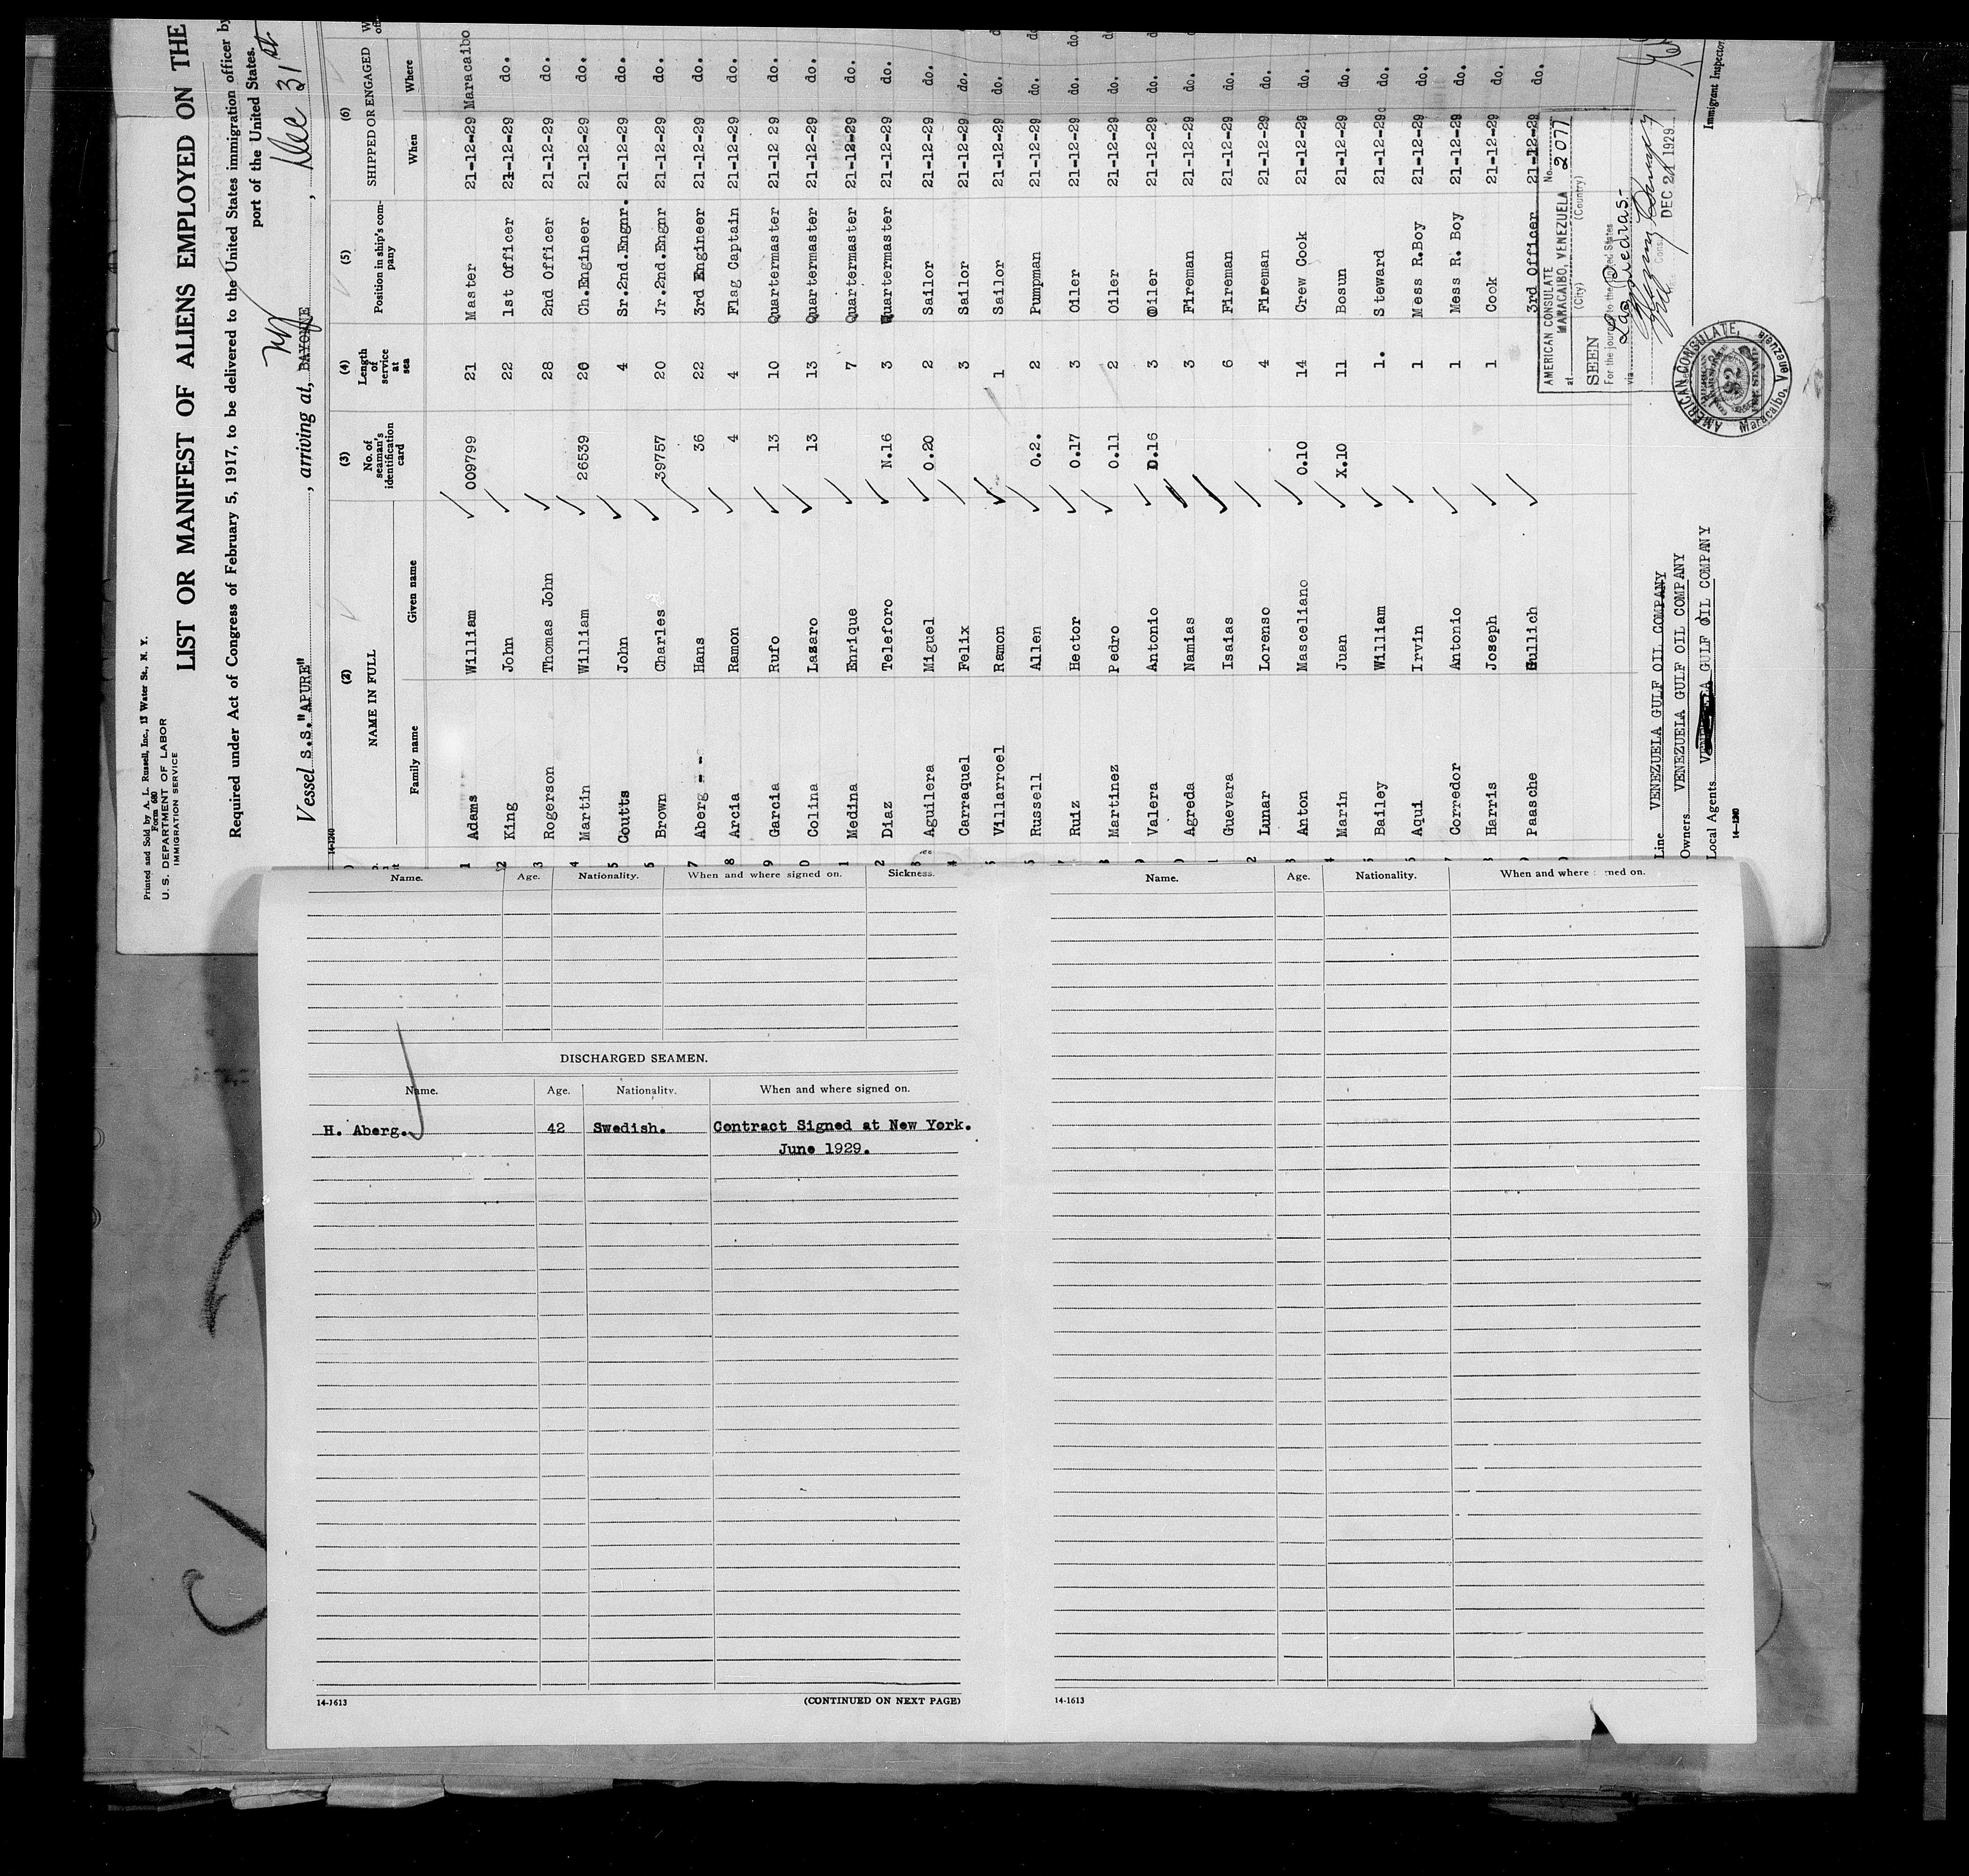 Printed and Sold by A. L. Russell, Inc., 13 Water St., N. Y.
Form 680
U. S. DEPARTMENT OF LABOR
IMMIGRATION SERVICE
LIST OR MANIFEST OF ALIENS EMPLOYED ON THE
Required under Act of Congress of February 5, 1917, to be delivered to the United States immigration officer by
port of the United States.
Vessel S.S."APURE", arriving at, BAYONNE NY, Dec 31st
14-1240
(2) (3) (4) (5) (6)
NAME IN FULL No. of seaman's identification card Length of service at sea Position in ship's company SHIPPED OR ENGAGED
Family name Given name When Where
1 Adams William 009799 21 Master 21-12-29 Maracaibo
2 King John 22 1st Officer 21-12-29 do.
3 Rogerson Thomas John 28 2nd Officer 21-12-29 do.
4 Martin William 26539 26 Ch.Engineer 21-12-29 do.
5 Coutts John 4 Sr.2nd.Engnr. 21-12-29 do.
6 Brown Charles 39757 20 Jr.2nd.Engnr 21-12-29 do.
7 Aberg - - Hans 36 22 3rd Engineer 21-12-29 do.
8 Arcia Ramon 4 4 Flag Captain 21-12-29 do.
9 Garcia Rufo 13 10 Quartermaster 21-12 29 do.
0 Colina Lazaro 13 13 Quartermaster 21-12-29 do.
1 Medina Enrique 7 Quartermaster 21-12-29 do.
2 Diaz Teleforo N.16 3 Quartermaster 21-12-29 do.
3 Aguilera Miguel 0.20 2 Sailor 21-12-29 do.
4 Carraquel Felix 3 Sailor 21-12-29 do.
5 Villarroel Ramon 1 Sailor 21-12-29 do.
6 Russell Allen 0.2. 2 Pumpman 21-12-29 do.
7 Ruiz Hector 0.17 3 Oiler 21-12-29 do.
8 Martinez Pedro 0.11 2 Oiler 21-12-29 do.
9 Valera Antonio D.16 3 Oiler 21-12-29 do.
0 Agreda Namias 3 Fireman 21-12-29 do.
1 Guevara Isaias 6 Fireman 21-12-29 do.
2 Lunar Lorenso 4 Fireman 21-12-29 do.
3 Anton Masceliano 0.10 14 Crew Cook 21-12-29 do.
4 Marin Juan X.10 11 Bosun 21-12-29 do.
5 Bailey William 1. Steward 21-12-29 do.
6 Aqui Irvin 1 Mess R.Boy 21-12-29 do.
7 Corredor Antonio 1 Mess R. Boy 21-12-29 do.
8 Harris Joseph 1 Cook 21-12-29 do.
9 Paasche Gullich 3rd Officer 21-12-29 do.
AMERICAN CONSULATE No. 2077
at MARACAIBO, VENEZUELA
(City) (Country)
SEEN
For the journey to the United States
via Las Piedras.
DEC 21 1929
AMERICAN CONSULATE, Maracaibo, Venezuela
$2
Line VENEZUELA GULF OIL COMPANY
Owners VENEZUELA GULF OIL COMPANY
Local Agents VENEZUELA GULF OIL COMPANY
Immigrant Inspector
14-1240
Name. Age. Nationality. When and where signed on. Sickness.
DISCHARGED SEAMEN.
Name. Age. Nationality. When and where signed on.
H. Aberg. 42 Swedish. Contract Signed at New York.
June 1929.
14-1613 (CONTINUED ON NEXT PAGE)
Name. Age. Nationality. When and where signed on.
14-1613